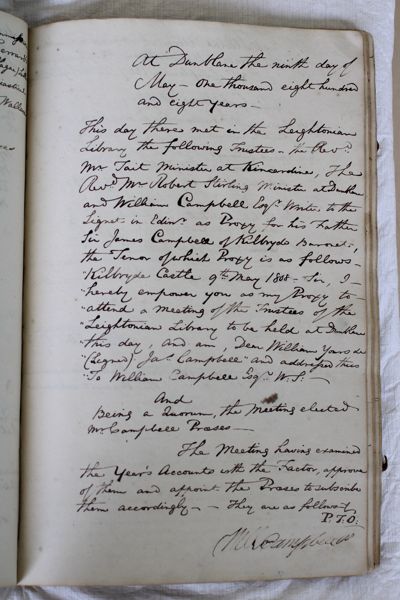 At Dunblane the ninth day of
May - one thousand eight hundred
and eight years -
This day there met in the Leightonian
Library the following Trustees - the Revd
Mr Tait Minister at Kincardine, The
Revd Mr Robert Stirling Minister at Dunblane
and William Campbell Esqr Writer to the
Signet in Edinr as Proxy for his Father
Sir James Campbell of Kilbryde Baronet,
the Tenor of which Proxy is as follows -
"Kilbryde Castle 9th May 1808 - Sir, I -
"hereby empower you as my Proxy to
"attend a meeting of the Trustees of the
"Leightonian Library to be held at Dunblane
"this day, and am, Dear William Yours &c
(Signed) Jas Campbell" and addressed thus
"To William Campbell Esqr W.S. -
And
Being a Quorum, the Meeting elected
Mr Campbell Preses -
The Meeting having examined
the Year's Accounts with the Factor, approve
of them and appoint the Preses to subscribe
them accordingly - - They are as follows
P.T.O.
Campbell